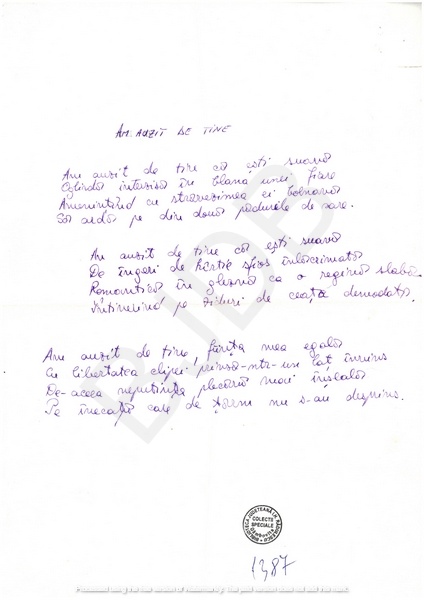 AM AUZIT DE TINE
Am auzit de tine că ești suavă
Oglindă interzisă în blana unei fiare
Amenințînd cu străvezimea ei bolnavă
Să ardă pe din două pădurile de sare.
Am auzit de tine că ești suavă
De îngeri de hârtie sfios înlăcrimată
Romantică în gheară ca o regină slabă
pe ziduri de ceață demodată.
Am auzit de tine, ființa mea egală
Cu libertatea clipei prinsă-ntr-un laț învins
De-aceea neputința plecării mai înșeală
Pe înecații care de țărm nu s-au desprins.
BIBLIOTECA JUDEȚEANĂ
COLECȚII SPECIALE
1387
BJDB